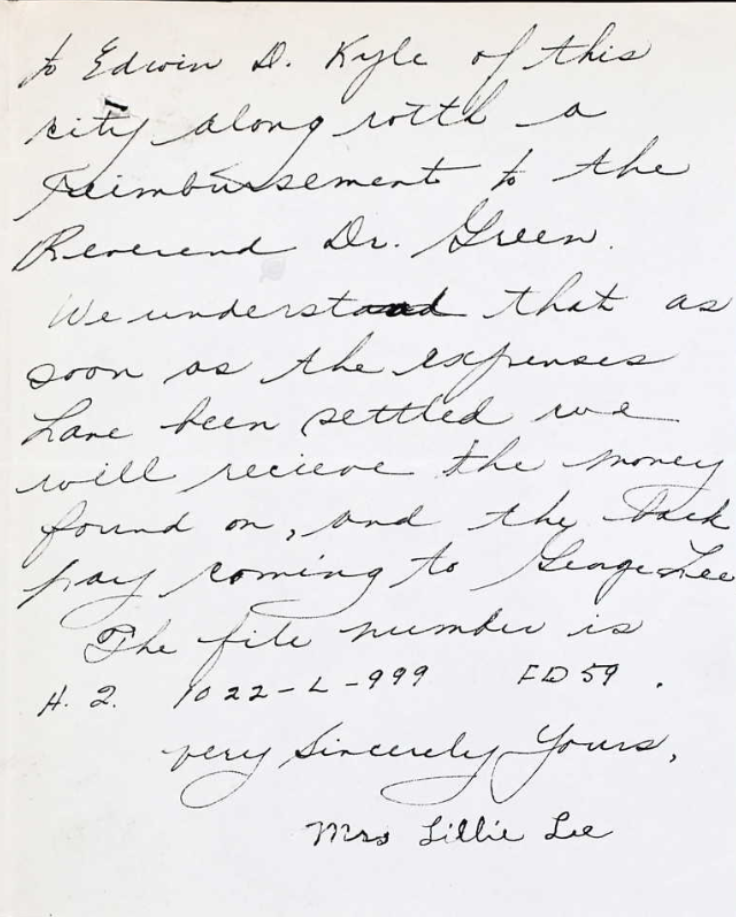 to Edwin D. Kyle of this
city along with a
reimbursement to the
Reverend Dr. Green.
We understand that as
soon as the expenses
have been settled we
will recieve the money
found on, and the back
pay coming to George Lee
The file number is
H. 2. 1022-L-999 FD 59.
very Sincerely Yours,
Mrs Lillie Lee